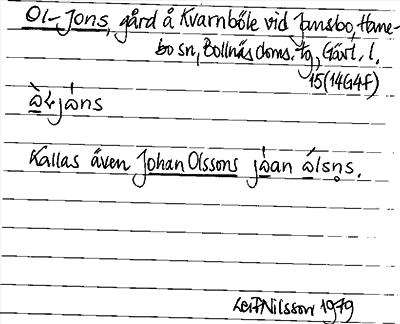 Ol-Jons, gård å Kvarnböle vid Jansbo, Hane-
bo sn, Bollnäs doms. tg, Gävl. l.
15(14G4f)
Kallas även Johan Olssons
Leif Nilsson 1979